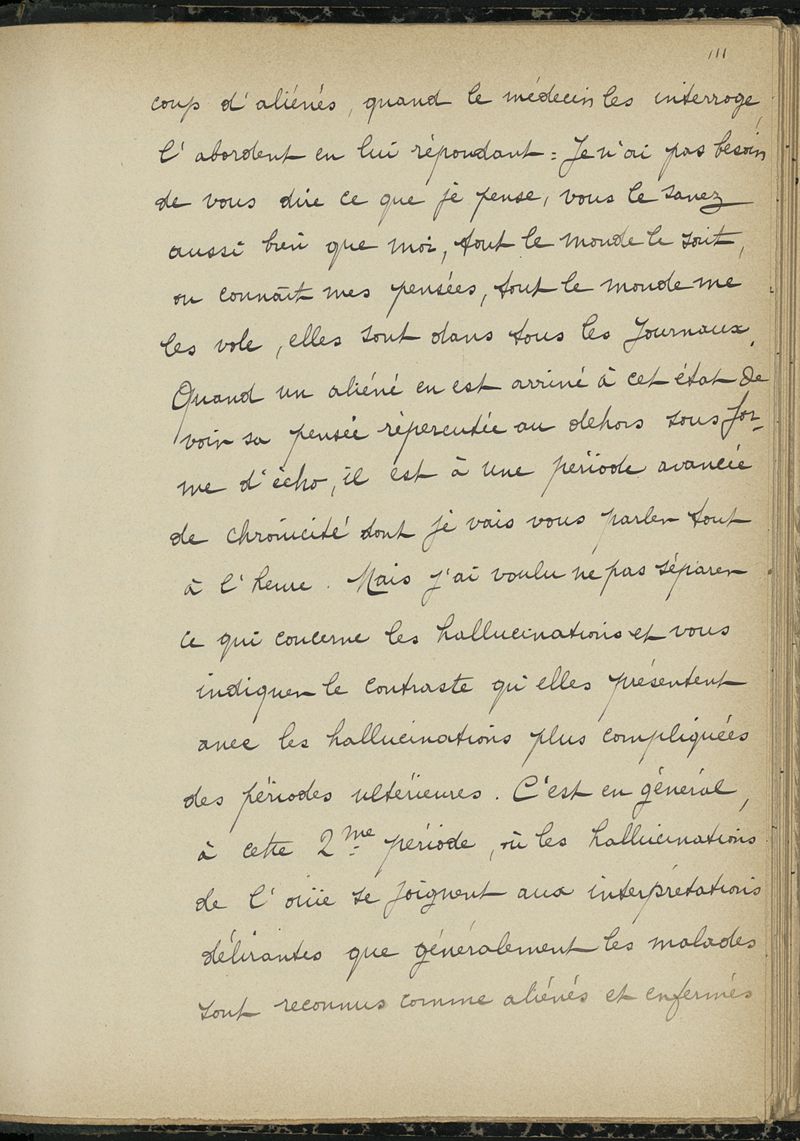 111
coup d'aliénés, quand le médecin les interroge,
l'abordent en lui répondant = Je n'ai pas besoin
de vous dire ce que je pense, vous le savez
aussi bien que moi, tout le monde le sait,
on connaît mes pensées, tout le monde me
les vole, elles sont dans tous les journaux.
Quand un aliéné en est arrivé à cet état de
voir sa pensée répercutée au dehors sous for-
me d'écho, il est à une période avancée
de chronicité dont je vais vous parler tout
à l'heure. Mais j'ai voulu ne pas séparer
ce qui concerne les hallucinations et vous
indiquer le contraste qu'elles présentent
avec les hallucinations plus compliquées
des périodes ultérieures. C'est en général,
à cette 2me période, où les hallucinations
de l'ouïe se joignent aux interprétations
délirantes que généralement les malades
sont reconnus comme aliénés et enfermés